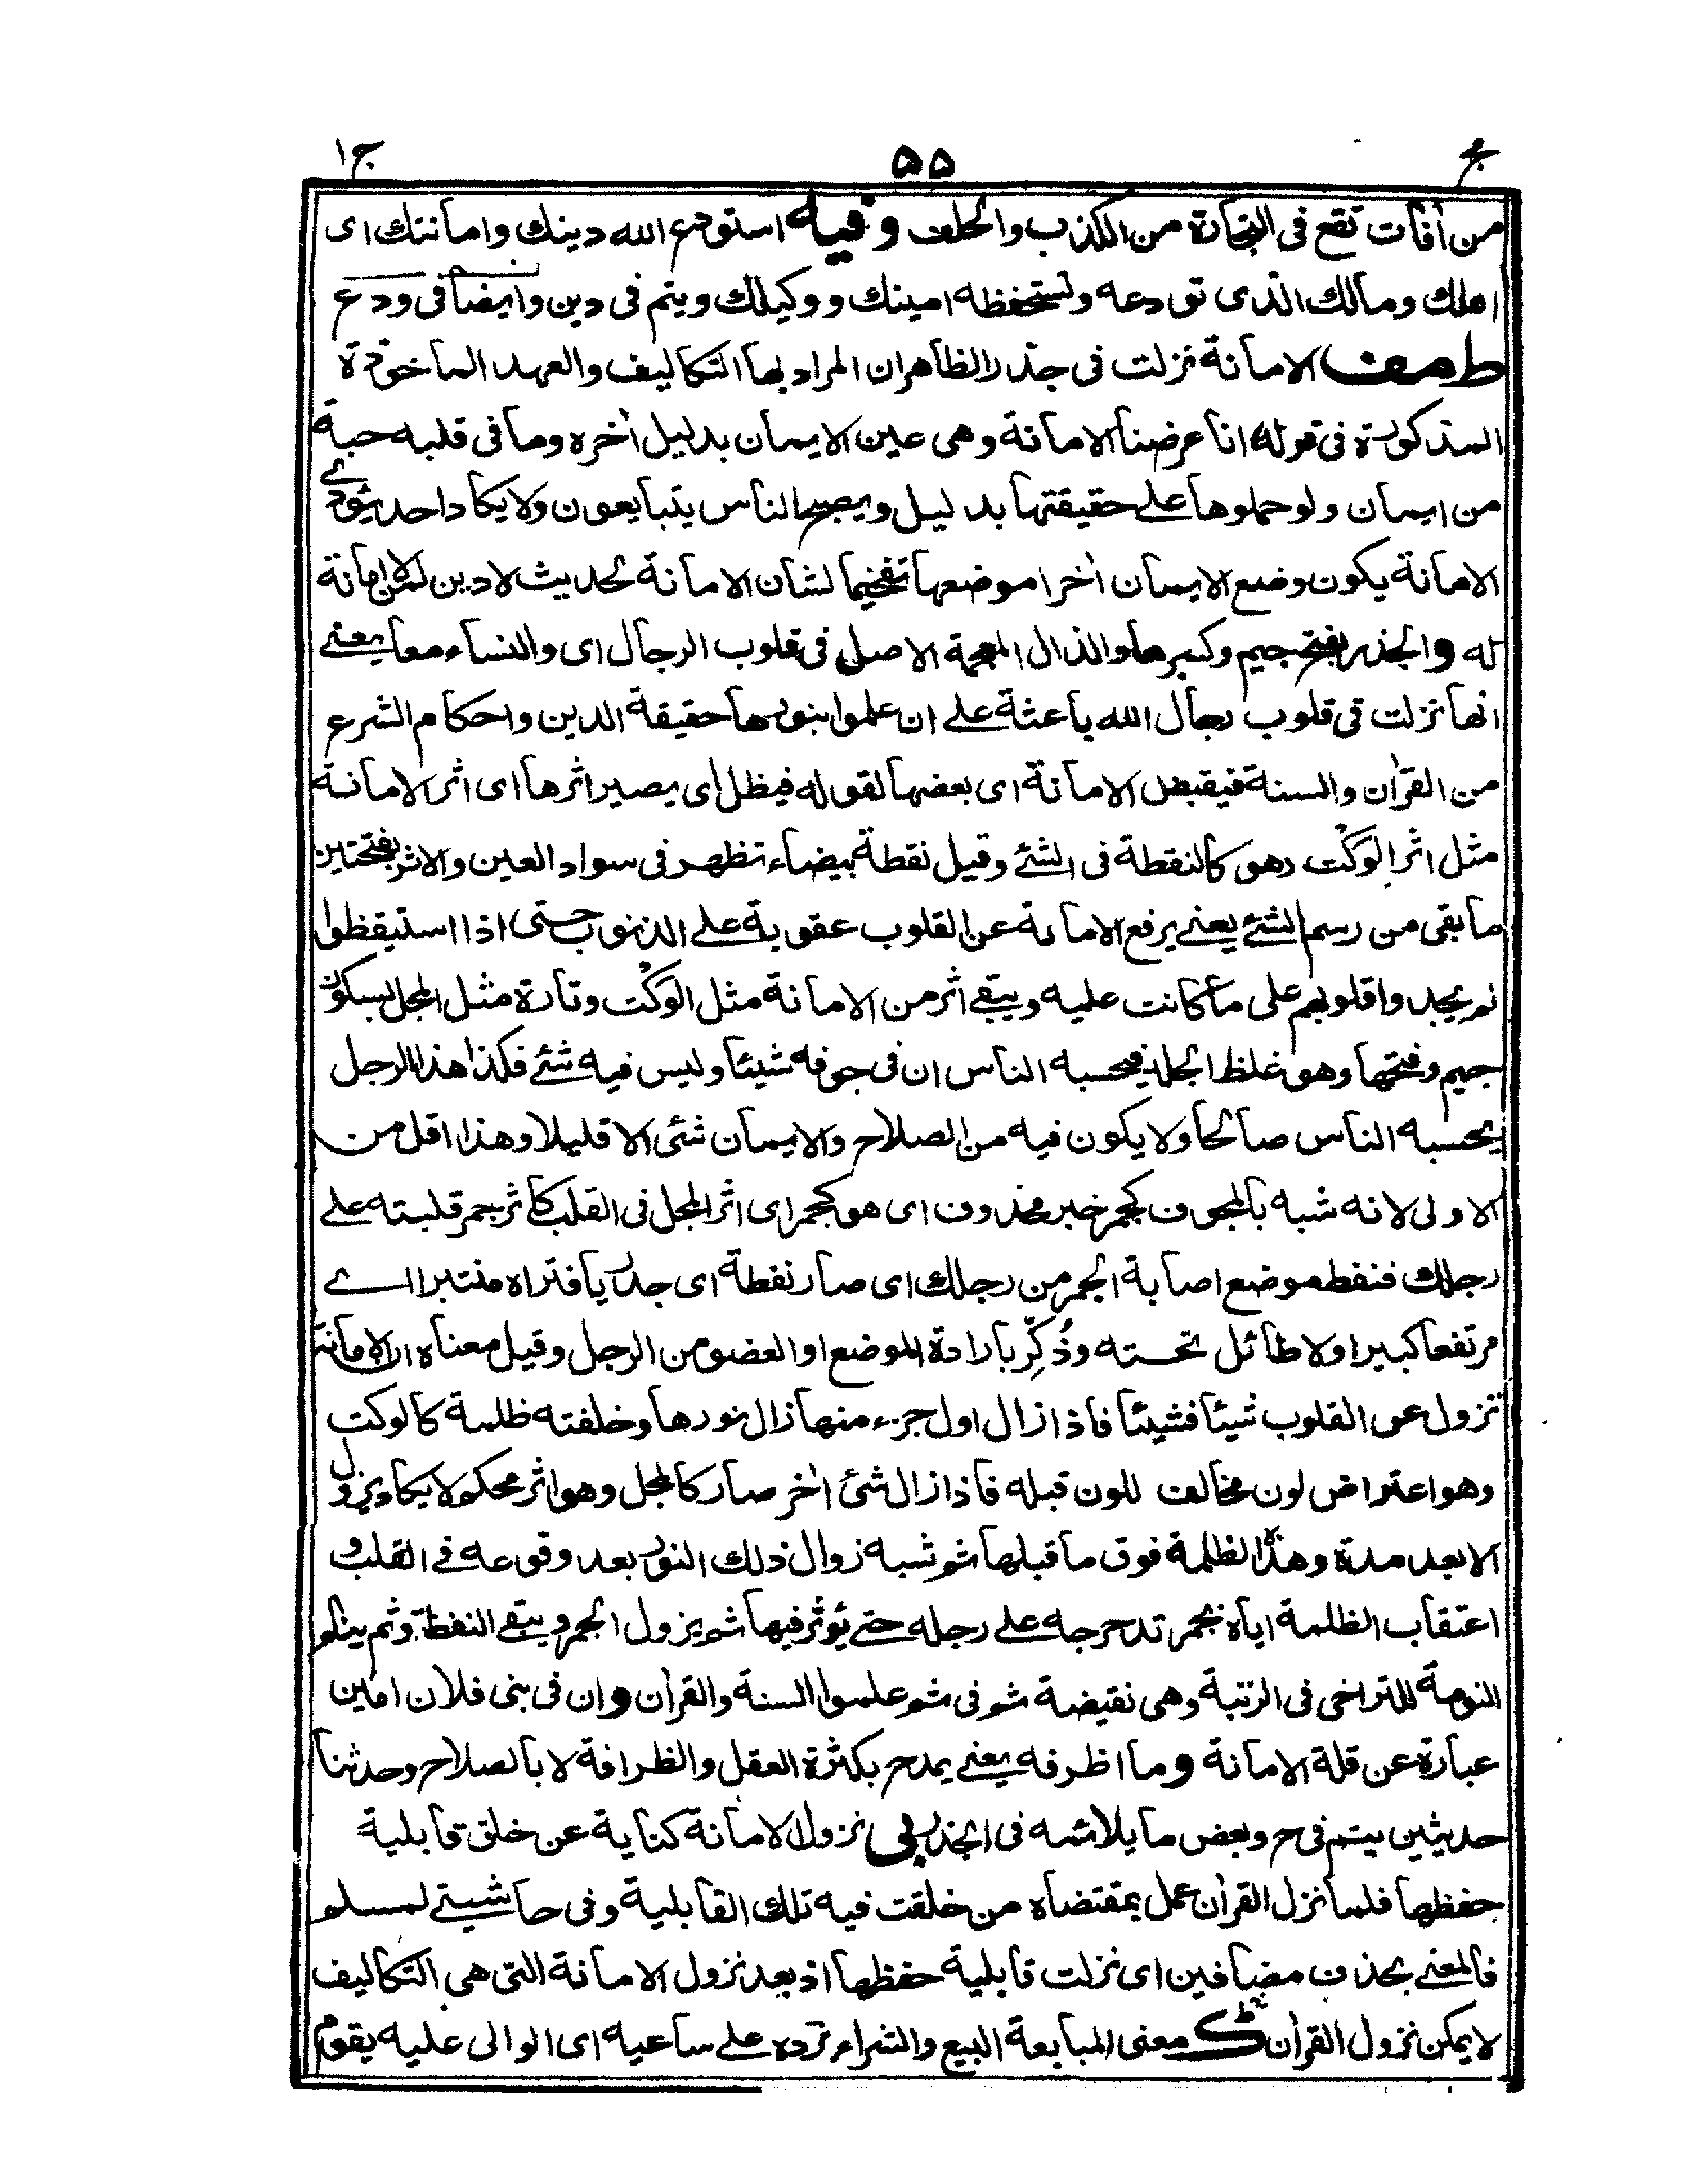 مج ۵۵ ج۱
من أفات تقع فى التجارة من الكذب والحلف و فيه استودع الله دينك وامانتك اى
اهلك ومالك الذى تودعه وتستحفظه امينك ووكيلك ويتم فى دين وايضا فى ودع
ط مف الامانة نزلت فى جذر الظاهر ان المراد بها التكاليف والعهد الماخوذة
المذكورة فى قوله انا عرضنا الامانة وهى عين الايمان بدليل أخره وما فى قلبه حبة
من ايمان ولو حملوها على حقيقتها بدليل ويصبح الناس يتبايعون ولا يكاد احد يؤدى
الامانة يكون وضع الايمان أخرا موضعها تفخيما لشان الامانة لحديث لا دين لمن لا امانة
له والجذر بفتح جيم وكسرها والذال المعجمة الاصل فى قلوب الرجال اى والنساء معا يعنى
انها نزلت فى قلوب رجال الله باعثة على ان علموا بنورها حقيقة الدين واحكام الشرع
من القرأن والسنة فيقبض الامانة اى بعضها لقوله فيظل اى يصير اثرها اى اثر الامانة
مثل اثر الوكت وهو كالنقطة فى الشئ وقيل نقطة بيضاء تظهر فى سواد العين والاثر بفتحتين
ما بقى من رسم الشئ يعنى يرفع الامانة عن القلوب عقوبة على الذنوب حتى اذا استيقظوا
لم يجدوا قلوبهم على ما كانت عليه ويبقى اثر من الامانة مثل الوكت وتارة مثل المجل بسكون
جيم وفتحها وهو غلظ الجلد فيحسبه الناس ان فى جوفه شيئا وليس فيه شئ فكذا هذا الرجل
يحسبه الناس صالحا ولا يكون فيه من الصلاح والايمان شئ الا قليلا وهذا اقل من
الاولى لانه شبه بالمجوف كجمر خبر محذوف اى هو كجمر اى اثر المجل فى القلب كاثر جمر قلبته على
رجلك فنفط موضع اصابة الجمر من رجلك اى صار نفطة اى جدريا فتراه منتبرا اى
مرتفعا كبيرا ولا طائل تحته وذُكِّر بارادة الموضع او العضو من الرجل وقيل معناه ان الامانة
تزول عن القلوب شيئا فشيئا فاذا زال اول جزء منها زال نورها وخلفته ظلمة كالوكت
وهو اعتراض لون مخالف للون قبله فاذا زال شئ أخر صار كالمجل وهو اثر محكم لا يكاد يزول
الا بعد مدة وهذه الظلمة فوق ما قبلها ثم شبه زوال ذلك النور بعد وقوعه فى القلب و
اعتقاب الظلمة اياه بجمر تدحرجه على رجله حتى يؤثر فيها ثم يزول الجمر ويبقى النفطة وثم ينام
النومة للتراخى فى الرتبة وهى نقيضة ثم فى ثم علموا السنة والقرأن وان فى بنى فلان امين
عبارة عن قلة الامانة وما اظرفه يعنى يمدح بكثرة العقل والظرافة لا بالصلاح وحدثنا
حديثين يتم فى ح وبعض ما يلائمه فى الجذر بى نزول الامانة كناية عن خلق قابلية
حفظها فلما نزل القرأن عمل بمقتضاه من خلقت فيه تلك القابلية وفى حاشيتى لمسلم
فالمعنى بحذف مضافين اى نزلت قابلية حفظها اذ بعد نزول الامانة التى هى التكاليف
لا يمكن نزول القرأن ك معنى المبايعة البيع والشراء ترده على ساعيه اى الوالى عليه يقوم